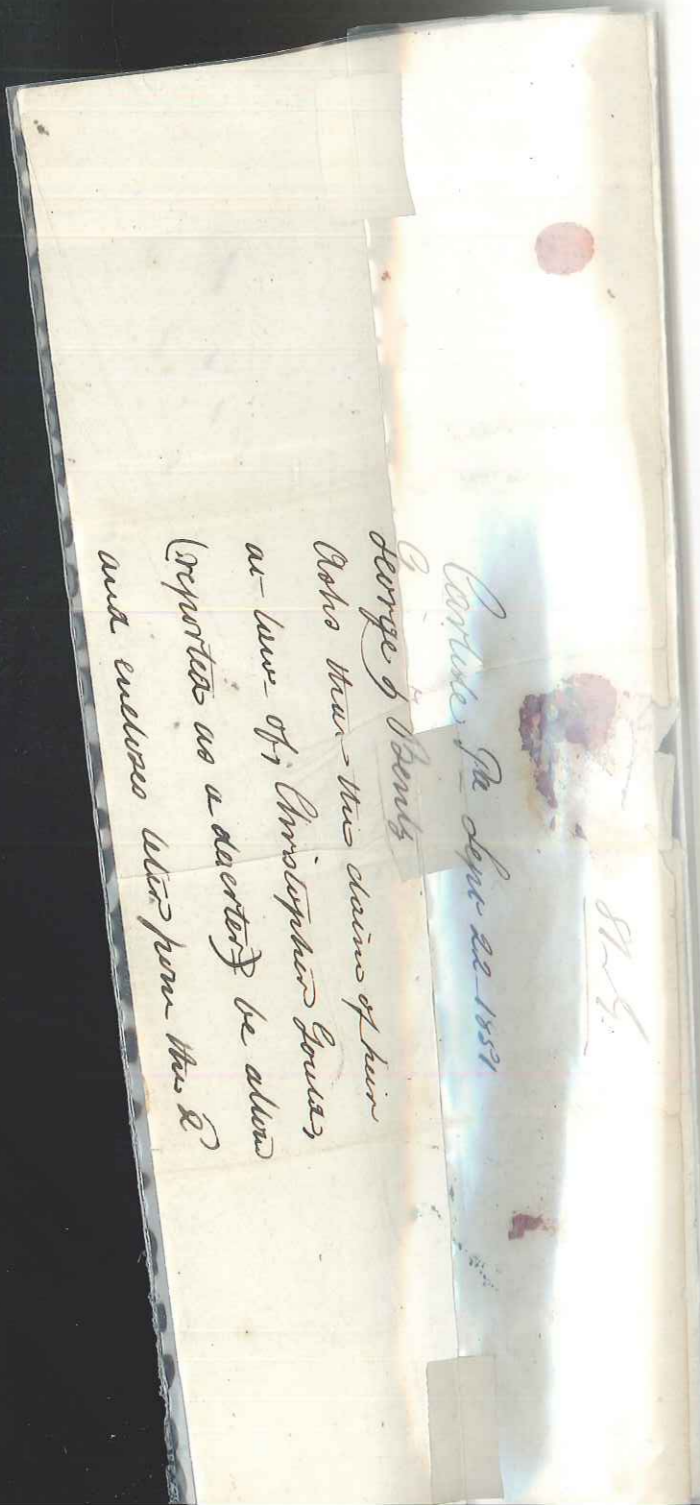 Carlisle Pa Sept 22 1851
George Bentz
Asks that the claim of heir
at law of Christopher Gould,
(reported as a deserter) be allow
and encloses letter from the 2